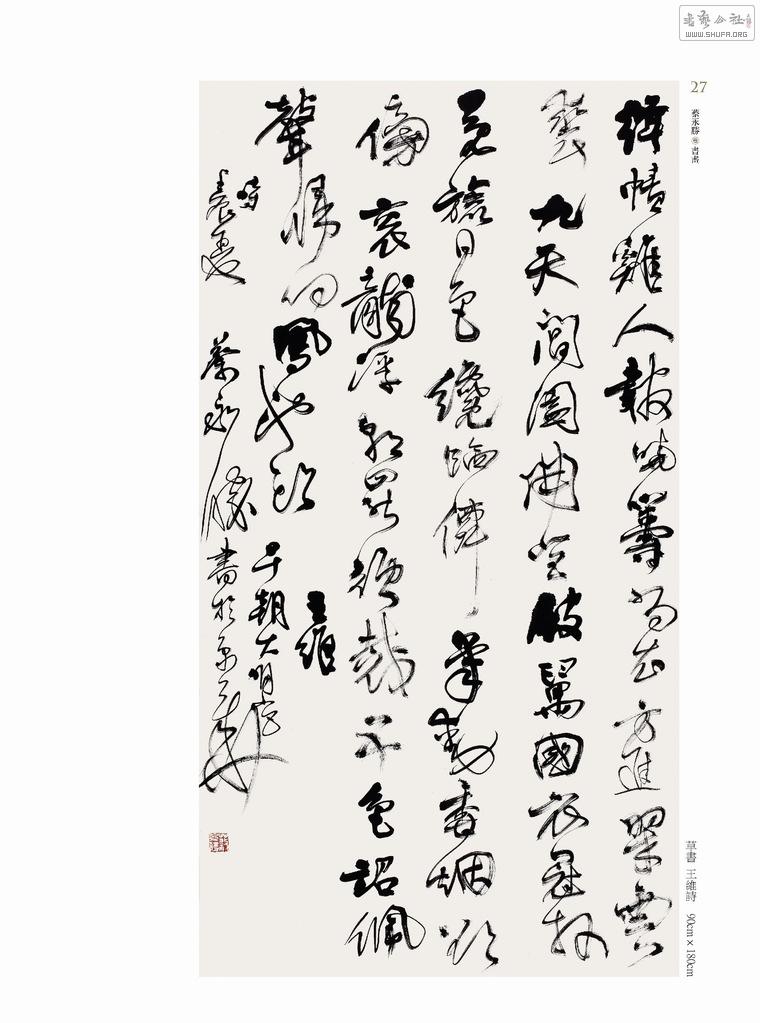 書藝公社
WWW.SHUFA.ORG
27
蔡永勝 書畫
絳幘雞人報曉籌尚衣方進翠雲
裘九天閶闔開宮殿萬國衣冠拜
冕旒日色纔臨僊掌動香烟欲
傍袞龍浮朝罷須裁五色詔佩
聲歸向鳳池頭
王維
早朝大明宮
蔡永勝書於京華
草書 王維詩 90cm×180cm